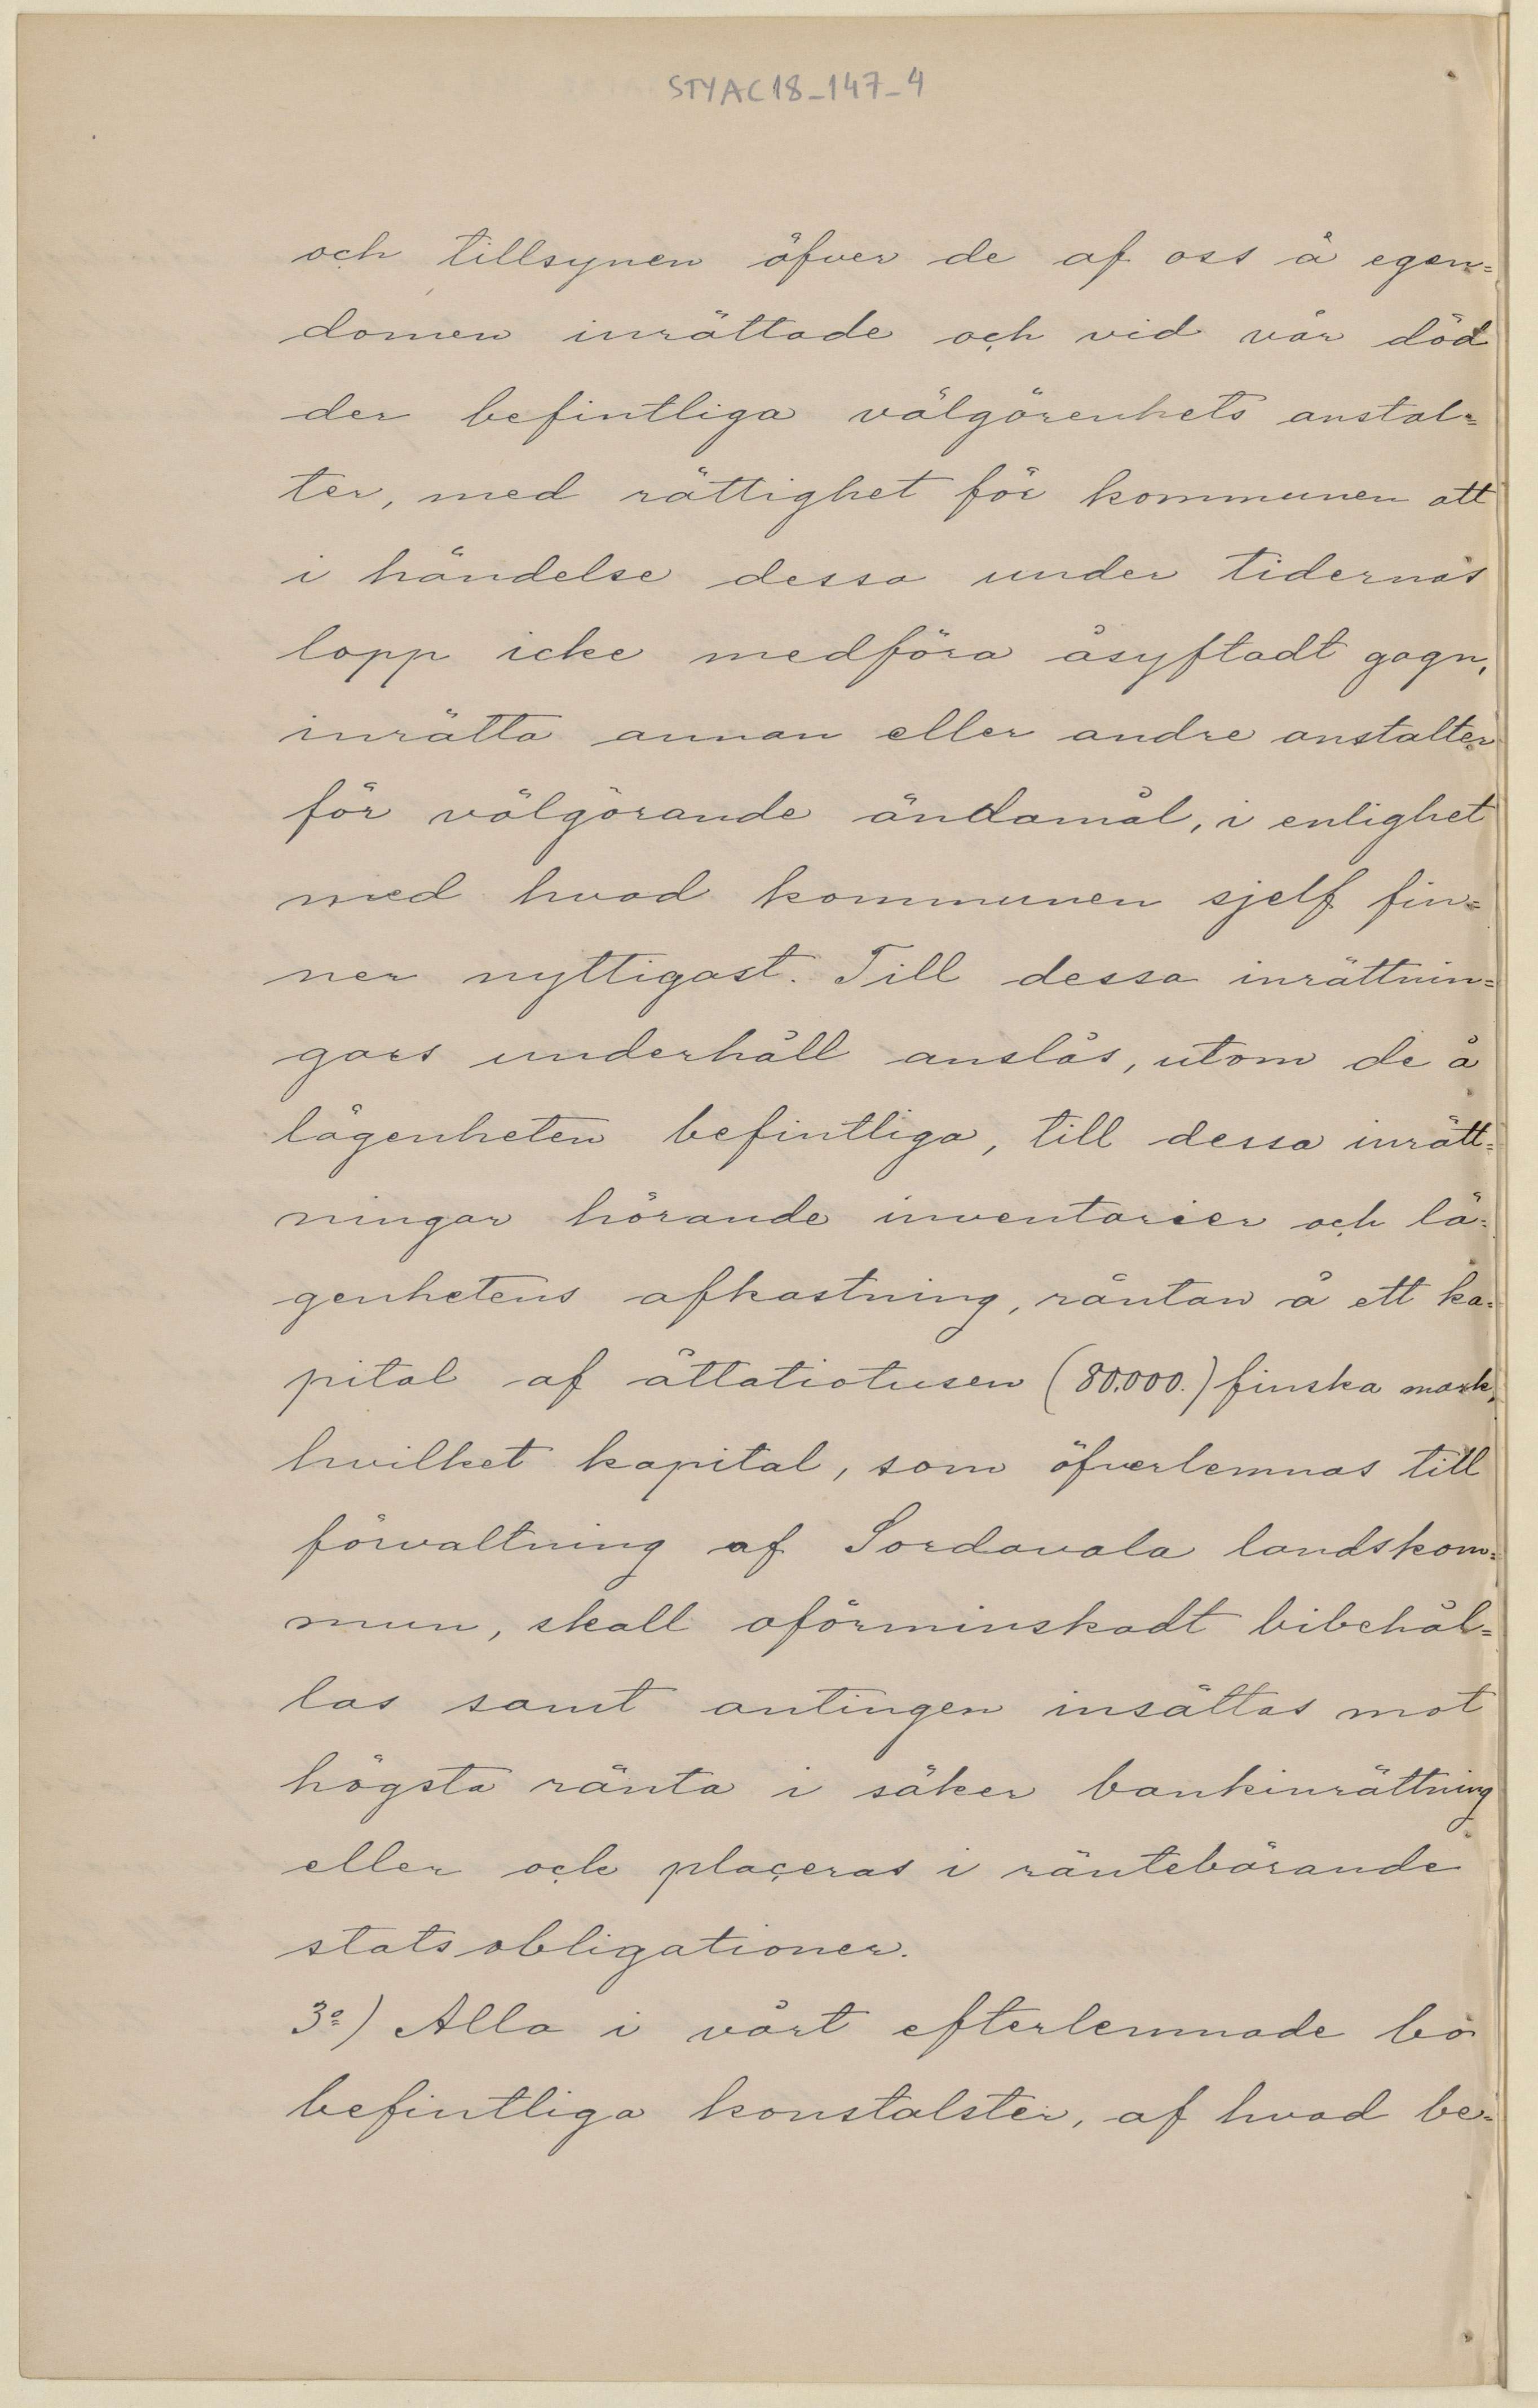 STYAC18_147_4
och tillsynen öfver de af oss å egen=
domen inrättade och vid vår död
der befintliga välgörenhets anstal=
ter, med rättighet för kommunen att
i händelse dessa under tidernas
lopp icke medföra åsyftadt gagn,
inrätta annan eller andre anstalter
för välgörande ändamål, i enlighet
med hvad kommunen sjelf fin=
ner nyttigast. Till dessa inrättnin=
gars underhåll anslås, utom de å
lägenheten befintliga, till dessa inrätt=
ningar hörande inventarier och lä=
genhetens afkastning, räntan å ett ka=
pital af åttatiotusen (80.000.) finska mark,
hvilket kapital, som öfverlemnas till
förvaltning af Sordavala landskom=
mun, skall oförminskadt bibehål=
las samt antingen insättas mot
högsta ränta i säker bankinrättning
eller och plaçeras i räntebärande
statsobligationer.
3º) Alla i vårt efterlemnade bo
befintliga konstalster, af hvad be=